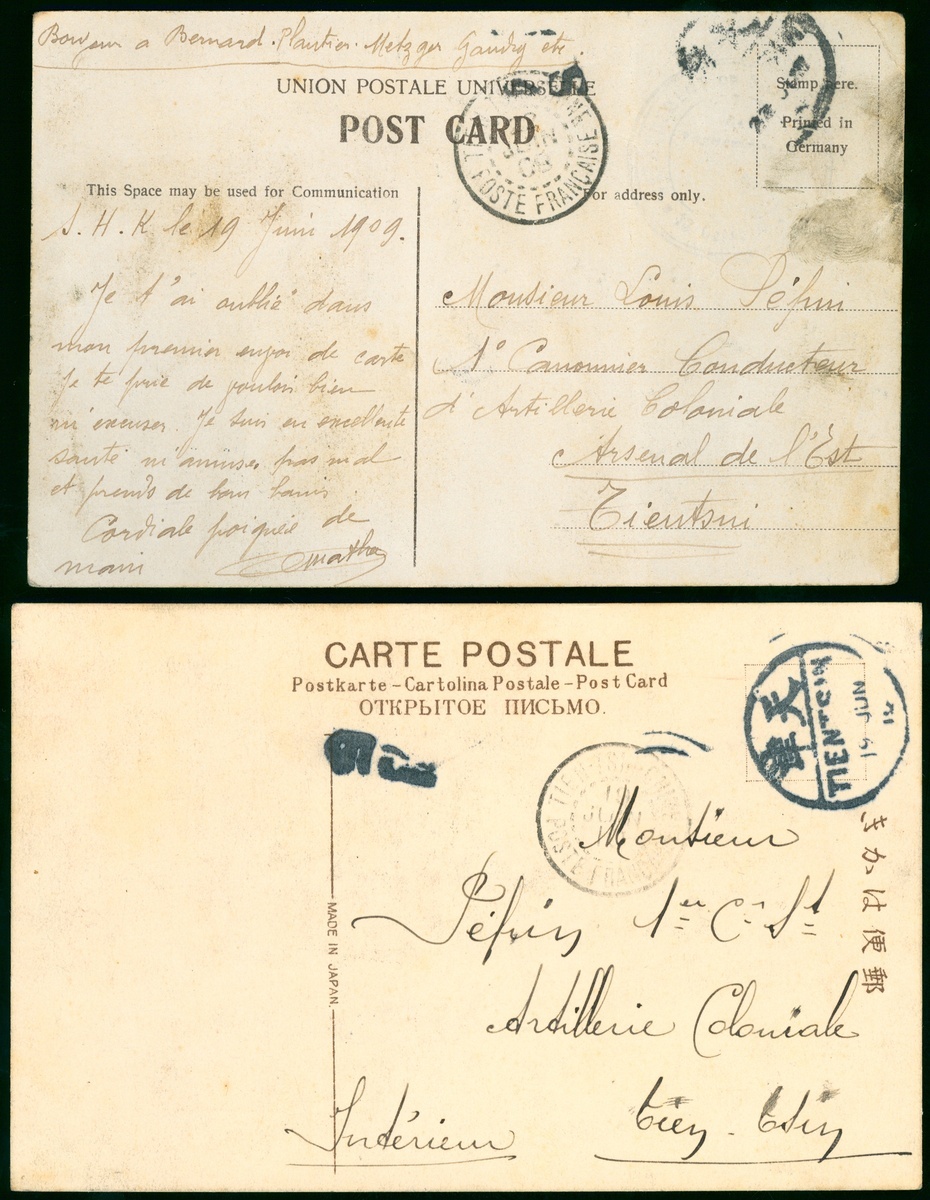 Bonjour a Bernard. Plautier. Metzger Gaudry etc.
UNION POSTALE UNIVERSELLE
POST CARD
Stamp here.
Printed in
Germany
POSTE FRANÇAISE
This Space may be used for Communication
For address only.
S. H. K le 19 Juin 1909.
Je t'ai oublié dans
mon premier envoi de carte
Je te prie de vouloir bien
m'excuser. Je suis en excellente
santé m'amuse pas mal
et prends de bons bains
Cordiale poignée de
main
Monsieur Louis Pépin
1º Canonnier Conducteur
d'Artillerie Coloniale
Arsenal de l'Est
Tientsin
CARTE POSTALE
Postkarte – Cartolina Postale – Post Card
ОТКРЫТОЕ ПИСЬМО.
天津
TIENTSIN
19 JUN
POSTE FRANÇAISE
MADE IN JAPAN.
郵便はかき
Monsieur
Pépin 1er C. St
Artillerie Coloniale
Intérieur Tien-Tsin